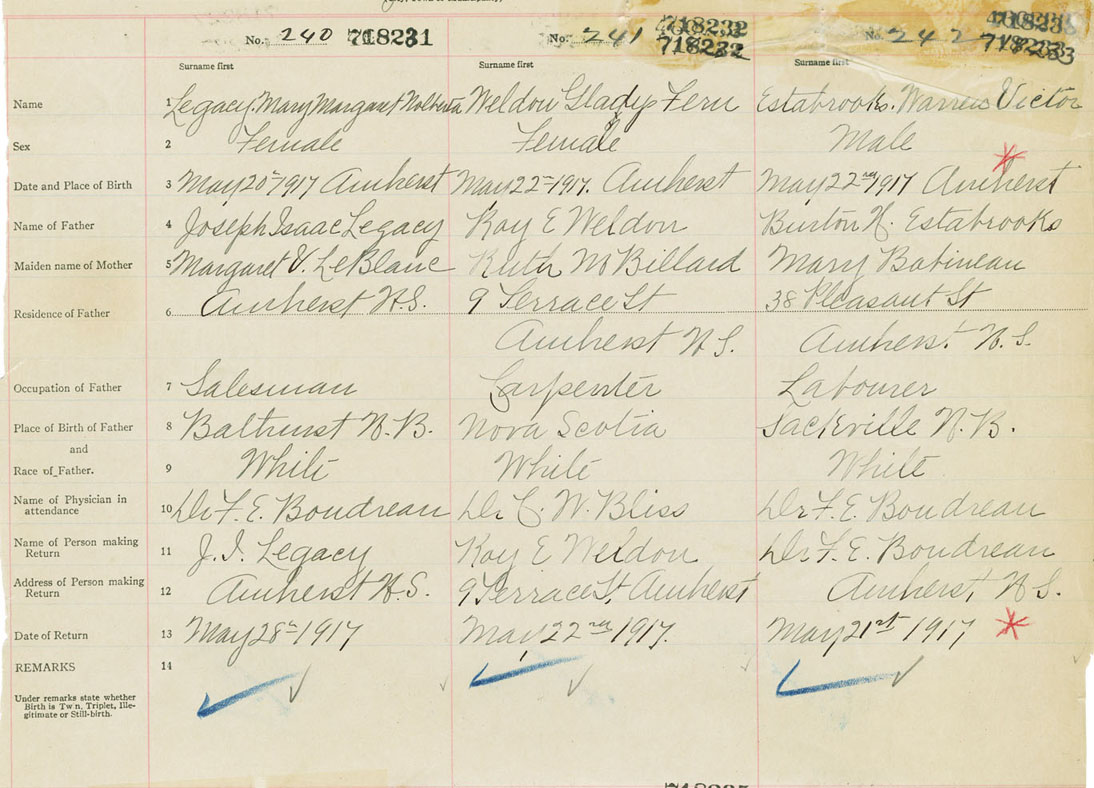 No. 240 718231 No. 241 718232 No. 242
718232 718233
Surname first Surname first Surname first
Name 1 Legacy, Mary Margaret Weldon Gladys Fern Estabrooks, Warren Victor
Sex 2 Female Female Male
Date and Place of Birth 3 May 20th 1917 Amherst May 22nd 1917. Amherst May 22nd 1917 Amherst
Name of Father 4 Joseph Isaac Legacy Roy E Weldon Burton H. Estabrooks
Maiden name of Mother 5 Margaret V. LeBlanc Ruth M Billard Mary Babineau
Residence of Father 6 Amherst N.S. 9 Terrace St 38 Pleasant St
Amherst N S. Amherst N. S.
Occupation of Father 7 Salesman Carpenter Labourer
Place of Birth of Father 8 Bathurst N.B. Nova Scotia Sackville N. B.
and
Race of Father. 9 White White White
Name of Physician in
attendance 10 Dr F. E. Boudreau Dr C. W. Bliss Dr F. E. Boudreau
Name of Person making
Return 11 J. I. Legacy Roy E Weldon Dr F. E. Boudreau
Address of Person making
Return 12 Amherst N.S. 9 Terrace St, Amherst Amherst, N S.
Date of Return 13 May 28th 1917 May 22nd 1917. May 21st 1917
REMARKS 14
Under remarks state whether
Birth is Twin, Triplet, Ille-
gitimate or Still-birth.